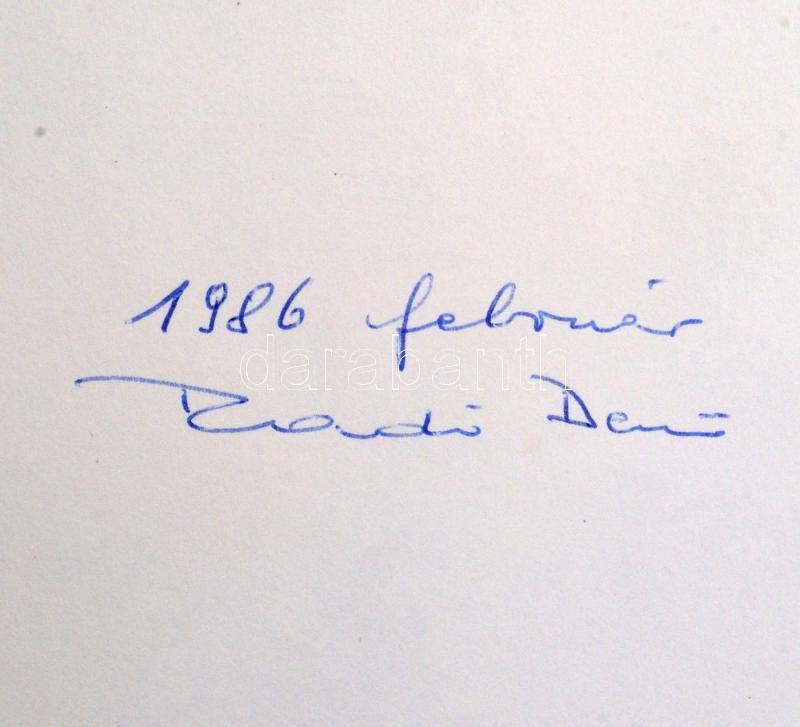 1986 február
darabanth
Radó Denő